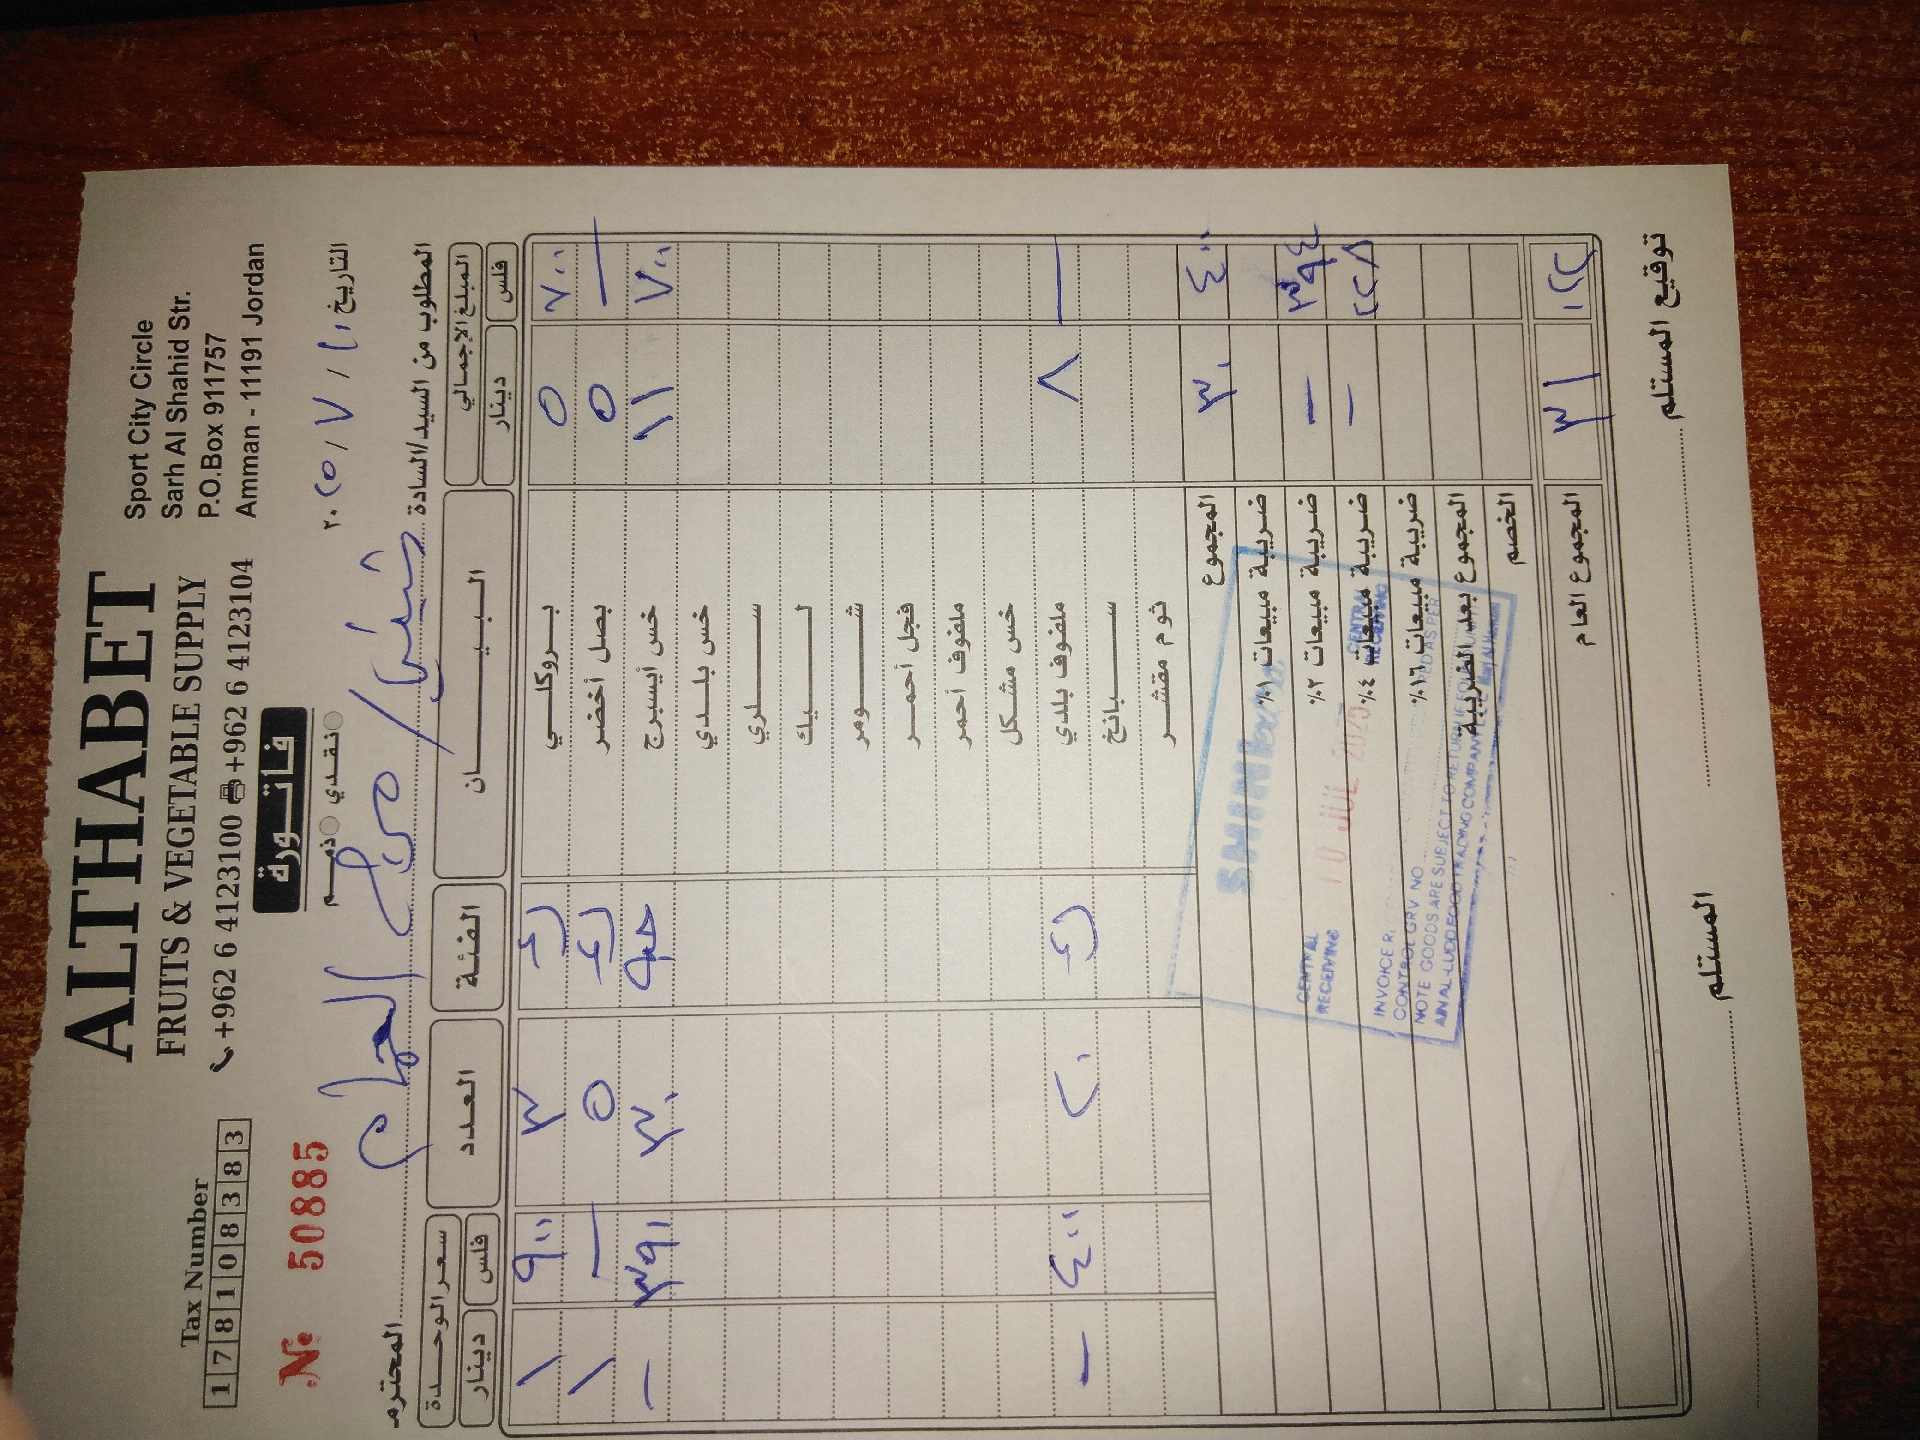 ALTHABET
FRUITS & VEGETABLE SUPPLY
+962 6 4123100 +962 6 4123104
Sport City Circle
Sarh Al Shahid Str.
P.O.Box 911757
Amman - 11191 Jordan
Tax Number
178108383
فاتورة
نقدي ذمم
№ 50885
التاريخ ١٠ / ٧ / ٢٠٢٥
المطلوب من السيد/السادة / مرج الحمام المحترم
المبلغ الإجمالي البيان الفئة العدد سعر الوحدة
فلس دينار فلس دينار
٧٠٠ ٥ بروكلي ٣ ٩٠٠ ١
— ٥ بصل أخضر ٥ — ١
٧٠٠ ١١ خس أيسبرج حبه ٣٠ ٣٩٠ —
خس بلدي
سلري
ليك
شومر
فجل أحمر
ملفوف أحمر
خس مشكل
— ٨ ملفوف بلدي ٢٠ ٤٠٠ —
سبانخ
ثوم مقشر
٤٠٠ ٣٠ المجموع
ضريبة مبيعات ١٪
٣٩٤ — ضريبة مبيعات ٢٪
٢٢٨ — ضريبة مبيعات ٤٪
ضريبة مبيعات ١٦٪
المجموع بعد الضريبة
الخصم
٠٢٢ ٣١ المجموع العام
CENTRAL
RECEIVING
10 JUL 2025
CENTRAL
RECEIVING
CONTROL GRV NO
NOTE GOODS ARE SUBJECT TO RETURN IF
FOOD TRADING COMPANY
توقيع المستلم
المستلم